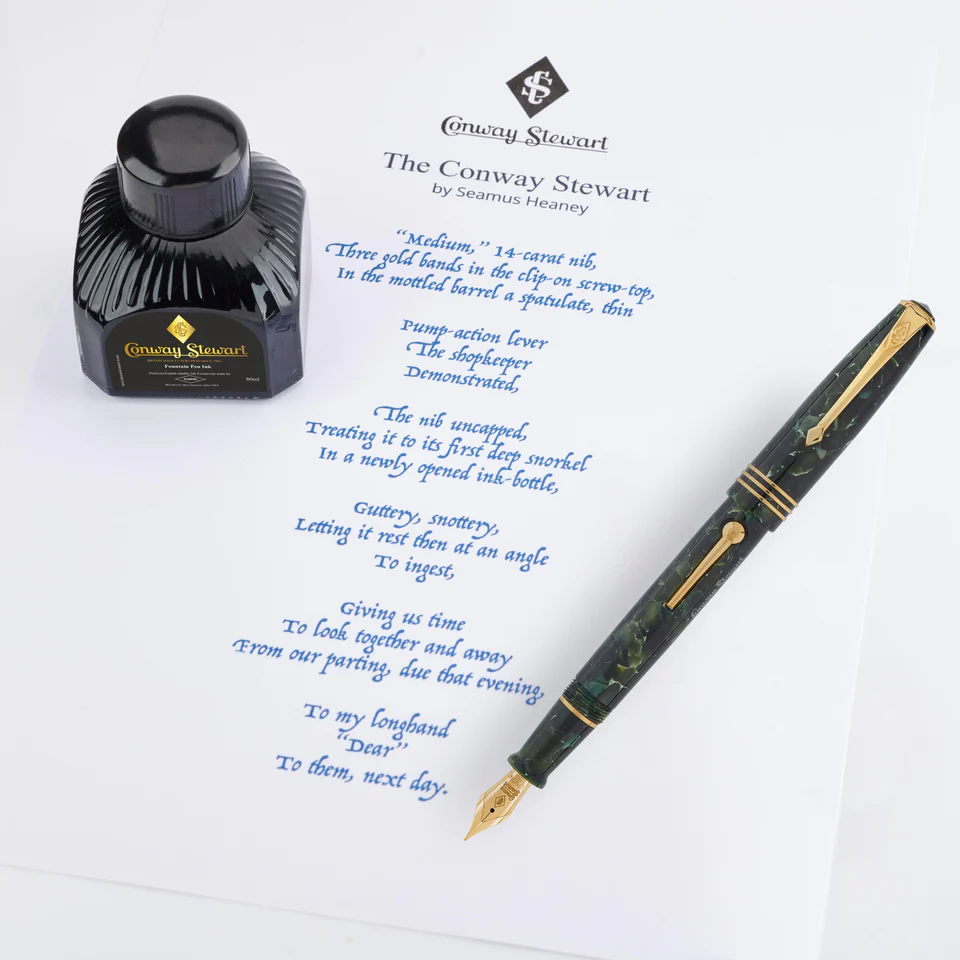 Conway Stewart
The Conway Stewart
by Seamus Heaney
“Medium,” 14-carat nib,
Three gold bands in the clip-on screw-top,
In the mottled barrel a spatulate, thin
Pump-action lever
The shopkeeper
Demonstrated,
The nib uncapped,
Treating it to its first deep snorkel
In a newly opened ink-bottle,
Guttery, snottery,
Letting it rest then at an angle
To ingest,
Giving us time
To look together and away
From our parting, due that evening,
To my longhand
“Dear”
To them, next day.
Conway Stewart
Fountain Pen Ink
80ml
Conway Stewart